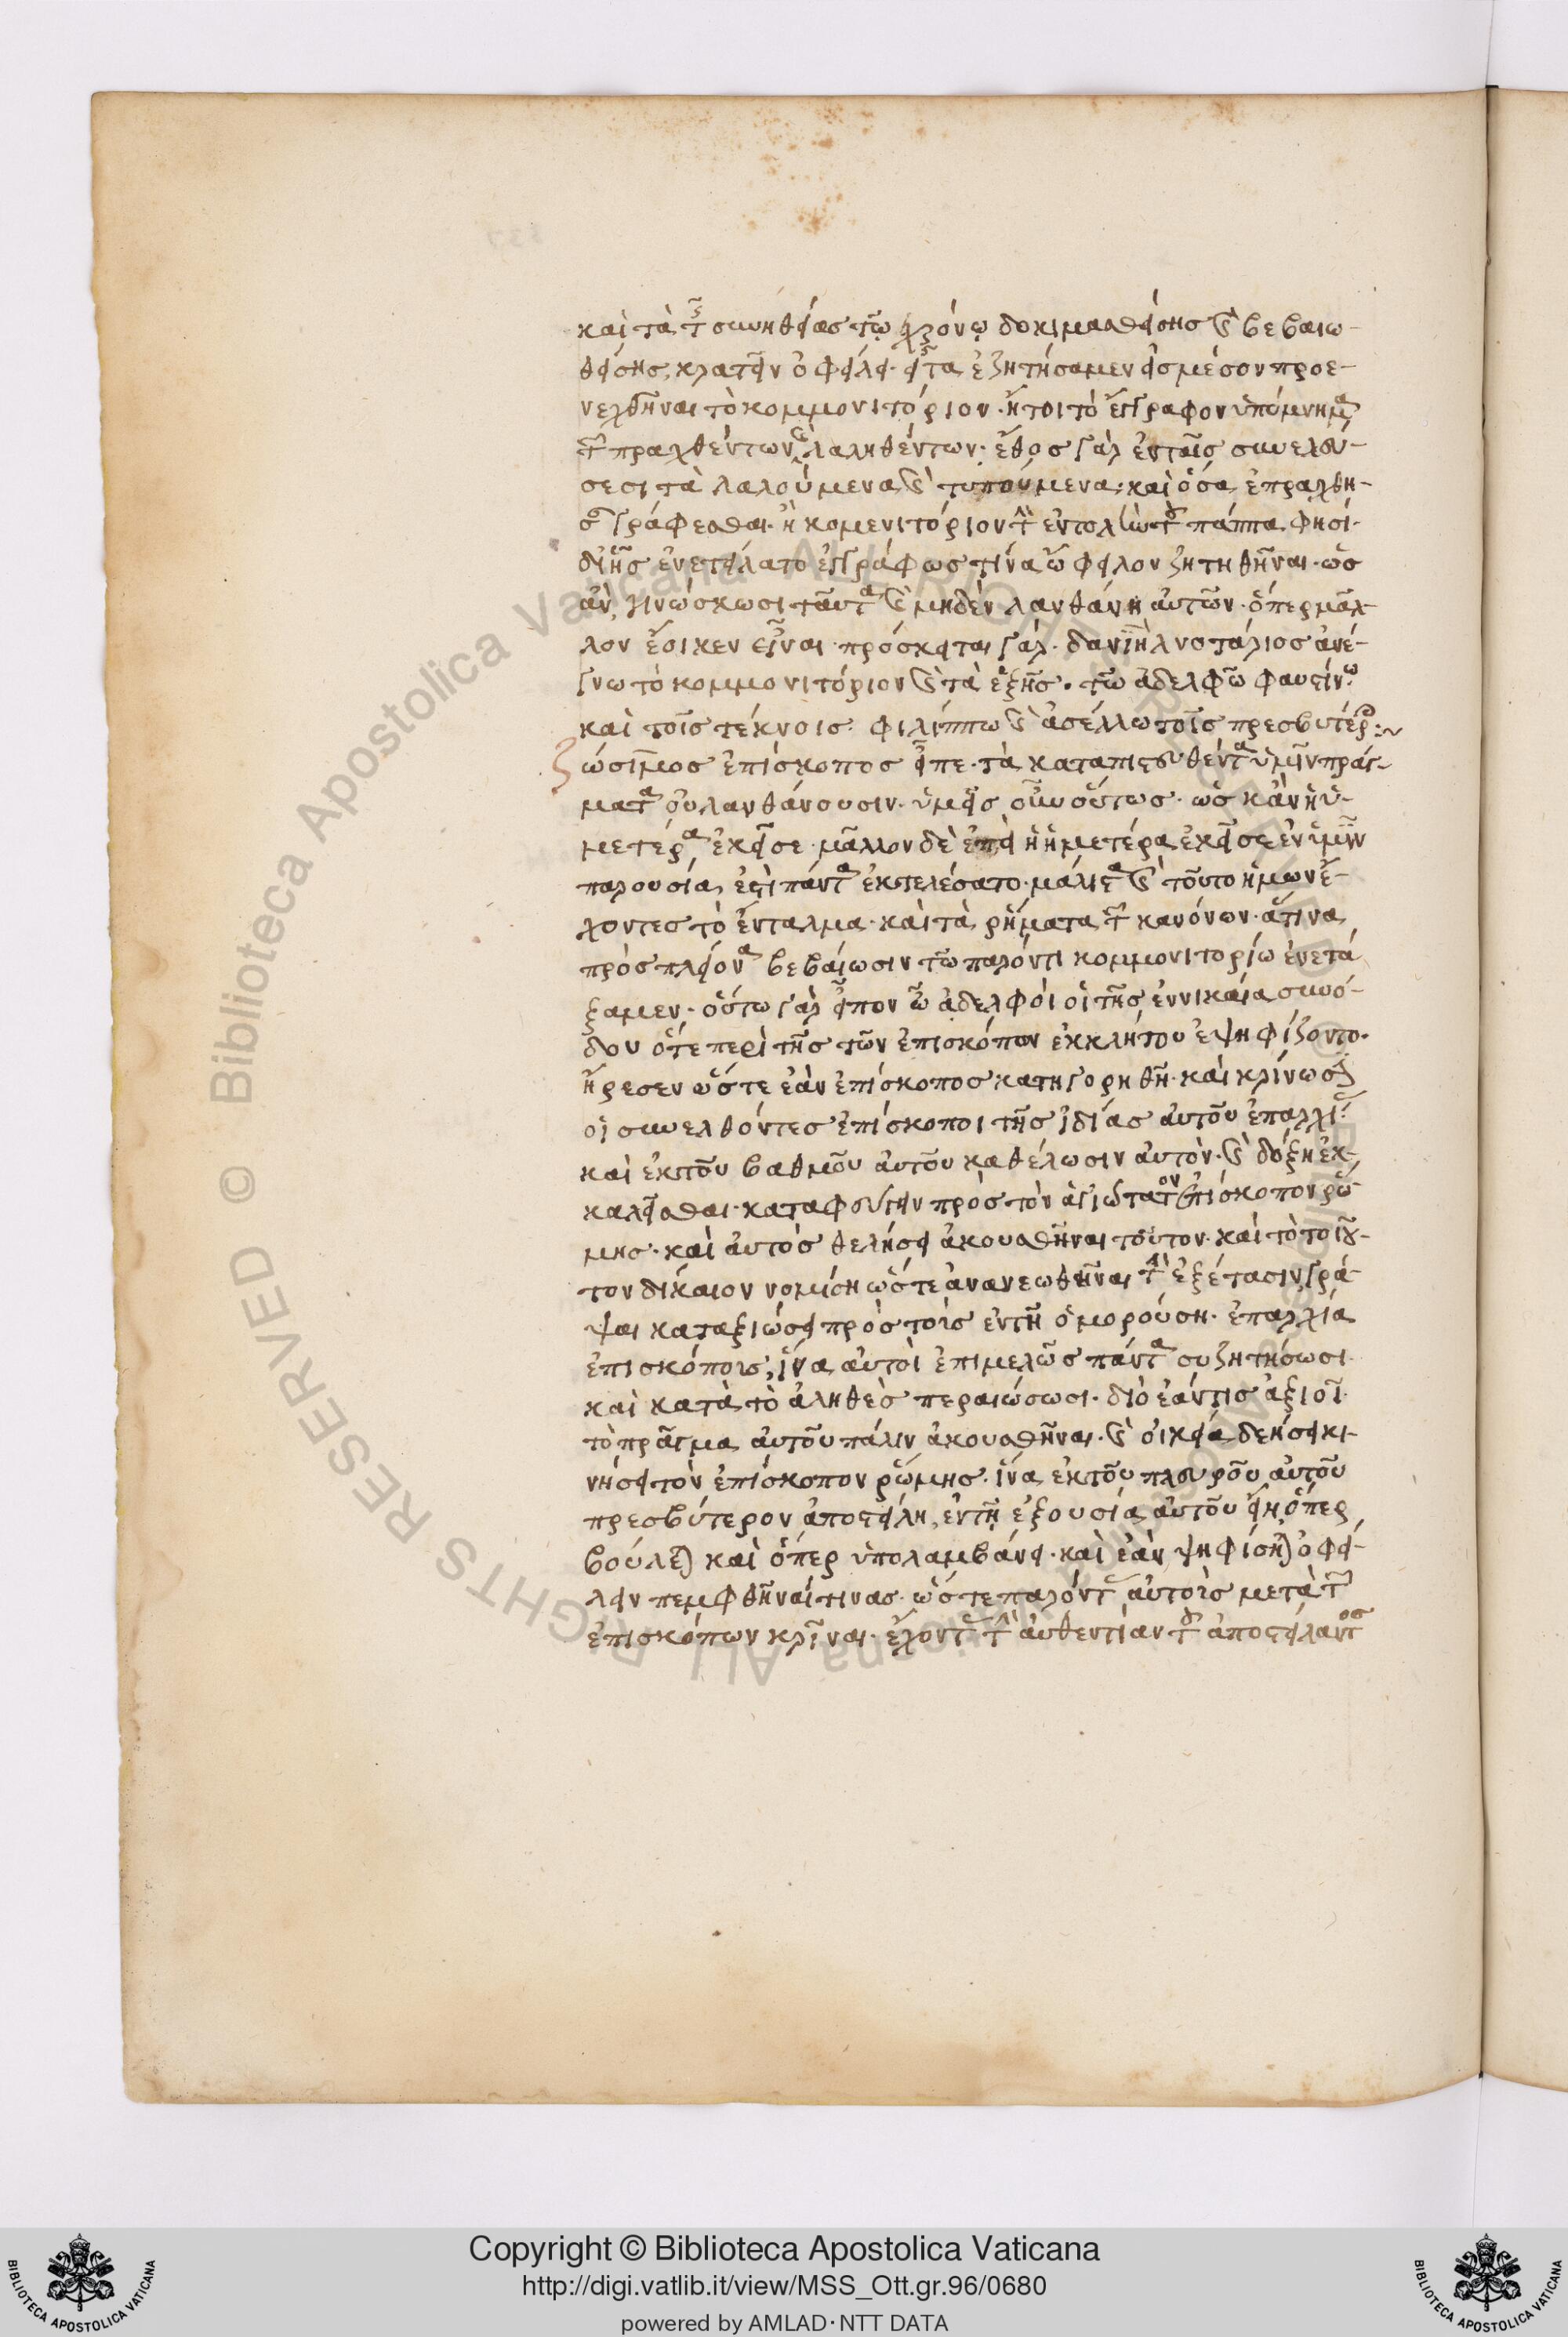 καὶ τὰ τῆς συνηθείας τῷ χρόνῳ δοκιμασθείσης καὶ βεβαιω-
θείσης, κρατεῖν ὀφείλει. εἶτα ἐζητήσαμεν εἰς μέσον προε-
νεχθῆναι τὸ κομμονιτόριον. ἤτοι τὸ ἔγγραφον ὑπόμνημα
τῶν πραχθέντων καὶ λαληθέντων. ἔθος γὰρ ἐν ταῖς συνελεύ-
σεσι τὰ λαλούμενα καὶ τυπούμενα. καὶ ὅσα ἐπράχθη-
σαν γράφεσθαι. ἢ κομενιτόριον τὴν ἐντολὴν τοῦ πάππα φησί.
δι' ἧς ἐνετείλατο ἐγγράφως τίνα ὤφειλον ζητηθῆναι. ὡς
ἂν γινώσκωσι ταῦτα καὶ μηδὲν λανθάνῃ αὐτῶν. ὅπερ μᾶλ-
λον ἔοικεν εἶναι. πρόσκειται γάρ. δανιὴλ νοτάριος ἀνέ-
γνω τὸ κομμονιτόριον καὶ τὰ ἑξῆς. τῶ ἀδελφῶ φαυστίνω
καὶ τοῖς τέκνοις φιλίππω καὶ ἀσέλλω τοῖς πρεσβυτέροις:~
ζώσιμος ἐπίσκοπος εἶπε. τὰ καταπιστευθέντα ὑμῖν πράγ-
ματα οὐ λανθάνουσιν. ὑμεῖς οὖν οὕτως. ὡς κἂν ἡ ὑ-
μετέρα ἐκεῖσε. μᾶλλον δὲ ἐπεὶ ἡ ἡμετέρα ἐκεῖσε ἐν ὑμῖν
παρουσία ἐστὶ πάντα ἐκτελέσατο. μάλιστα καὶ τοῦτο ἡμῶν ἔ-
χοντες τὸ ἔνταλμα. καὶ τὰ ῥήματα τῶν κανόνων. ἅτινα
πρὸς πλείονα βεβαίωσιν τῶ παρόντι κομμονιτορίω ἐνετά
ξαμεν. οὕτω γὰρ εἶπον ὦ ἀδελφοὶ οἱ τῆς ἐν νικαία συνό-
δου ὅτε περὶ τῆς τῶν ἐπισκόπων ἐκκλήτου ἐψηφίζοντο.
ἤρεσεν ὥστε ἐὰν ἐπίσκοπος κατηγορηθῆ. καὶ κρίνωσιν
οἱ συνελθόντες ἐπίσκοποι τῆς ἰδίας αὐτοῦ ἐπαρχίας
καὶ ἐκ τοῦ βαθμοῦ αὐτοῦ καθέλωσιν αὐτόν. καὶ δόξη ἐκ-
καλεῖσθαι. καταφεύγειν πρὸς τὸν ἁγιώτατον ἐπίσκοπον ῥώ-
μης. καὶ αὐτὸς θελήσει ἀκουσθῆναι τοῦτον. καὶ τὸ τοιοῦ-
τον δίκαιον νομίση ὥστε ἀνανεωθῆναι τὴν ἐξέτασιν, γρά-
ψαι καταξιώσει πρὸς τοῖς ἐν τῆ ὁμορούση. ἐπαρχία
ἐπισκόποις, ἵνα αὐτοὶ ἐπιμελῶς πάντα συζητήσωσι.
καὶ κατὰ τὸ ἀληθὲς περαιώσωσι. διὸ ἐάν τις ἀξιοῖ.
τὸ πρᾶγμα αὐτοῦ πάλιν ἀκουσθῆναι. καὶ οἰκεία δεήσει κι-
νήσει τὸν ἐπίσκοπον ῥώμης. ἵνα ἐκ τοῦ πλευροῦ αὐτοῦ
πρεσβύτερον ἀποστείλη, ἐν τῆ ἐξουσία αὐτοῦ εἴη ὅπερ
βούλεται καὶ ὅπερ ὑπολαμβάνει. καὶ ἐὰν ψηφίσηται ὀφεί-
λειν πεμφθῆναί τινας. ὥστε παρόντας αὐτοὺς μετὰ τῶν
ἐπισκόπων κρῖναι. ἔχοντας τὴν αὐθεντίαν τοῦ ἀποστείλαντος
Copyright © Biblioteca Apostolica Vaticana
http://digi.vatlib.it/view/MSS_Ott.gr.96/0680
powered by AMLAD·NTT DATA